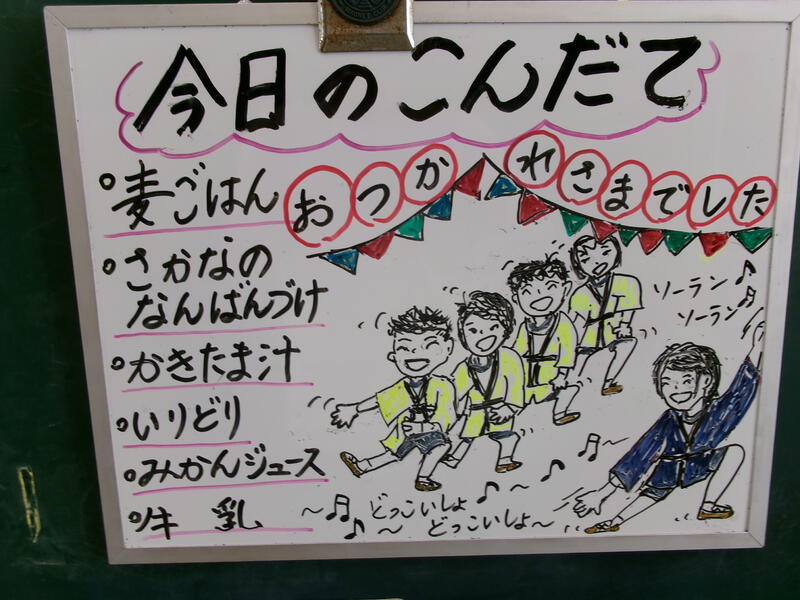 今日のこんだて
おつかれさまでした
麦ごはん
さかなの
なんばんづけ
かきたま汁
いりどり
みかんジュース
牛乳
ソーラン♪
ソーラン♬
～♬♪どっこいしょ♪～♪♬～
～どっこいしょ～